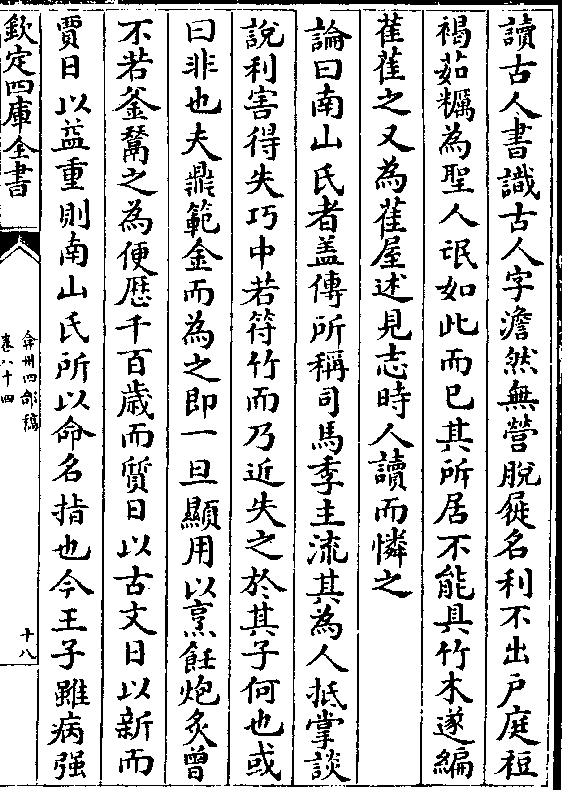 讀古人書識古人字澹然無營脫屣名利不出戸庭裋
褐茹糲為聖人氓如此而已其所居不能具竹木遂編
萑萑之又為萑屋述見志時人讀而憐之
論曰南山氏者盖傳所稱司馬季主流其為人抵掌談
說利害得失巧中若符竹而乃近失之於其子何也或
曰非也夫鼎範金而為之即一旦顯用以烹飪炮炙曾
不若釜鬵之為便歴千百歳而質日以古文日以新而
賈日以益重則南山氏所以命名指也今王子雖病强
欽定四庫全書
弇州四部稿
卷八十四
十八